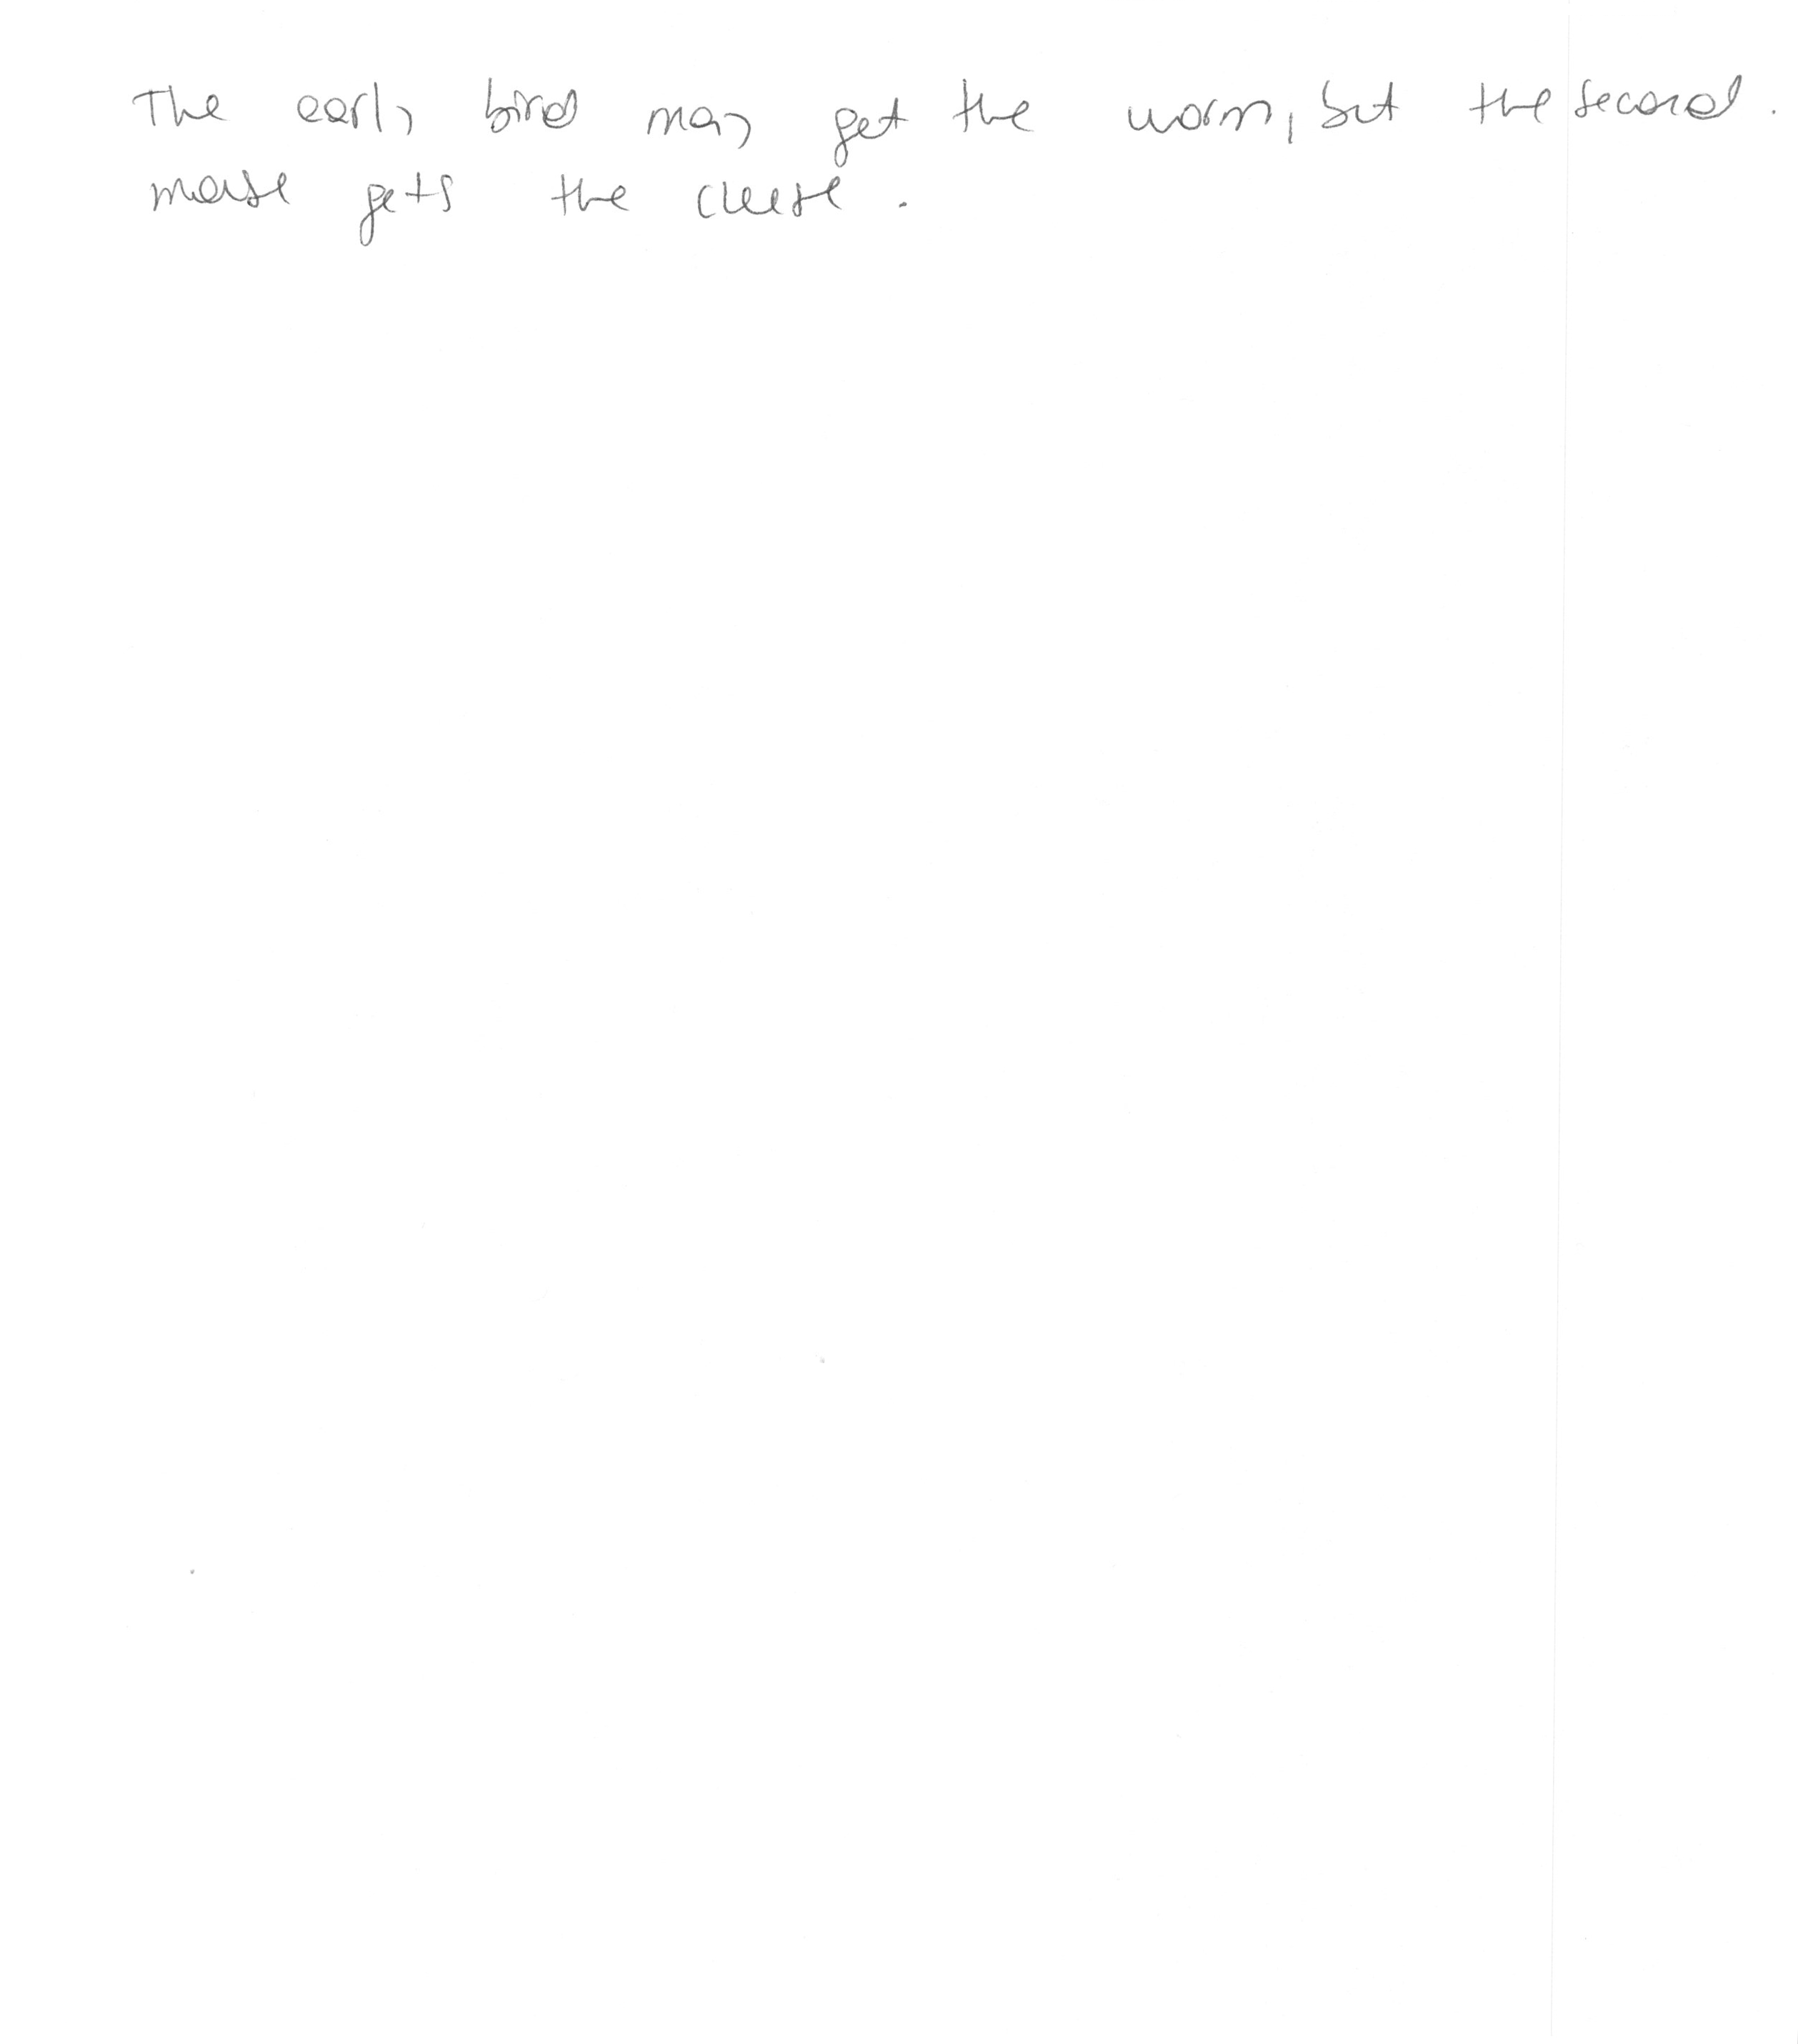 The early bird may get the worm, but the second.
mouse gets the cheese.